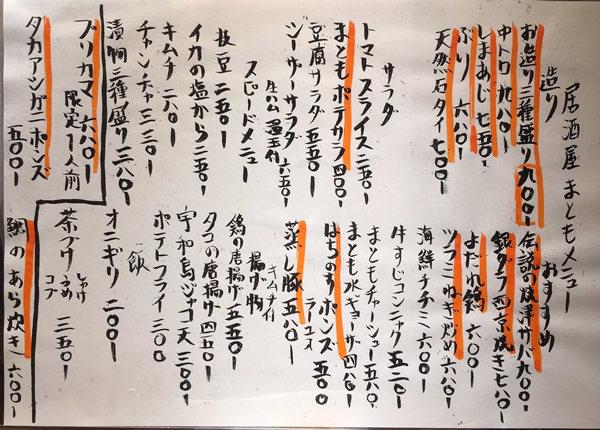 居酒屋まともメニュー
造り
お造り三種盛り九〇〇ー
中トロ九八〇ー
しまあじ七五〇ー
ぶり六八〇ー
天然石タイ七〇〇ー
サラダ
トマトスライス二五〇ー
まともポテサラ四〇〇ー
豆腐サラダ五五〇ー
シーザーサラダ六五〇ー
生ハム温玉付
スピードメニュー
枝豆二五〇ー
イカの塩から三五〇ー
キムチ二八〇ー
チャンヂャ三三〇ー
漬物三種盛り三八〇ー
ブリカマ六八〇ー
限定一人前
タカアシガニポンズ
五〇〇ー
おすすめ
伝説の焼津サバ九〇〇ー
銀ダラ西京焼き七八〇ー
よだれ鶏六〇〇ー
ツラミねぎ炒め六八〇ー
海鮮チヂミ六〇〇ー
牛すじコンニャク五二〇ー
まともチャーシュー五八〇ー
まとも水ギョーザ四八〇ー
はちのすポンズ五〇〇ー
蒸し豚五八〇ー
キムチ付
揚げ物
鶏の唐揚げ五五〇ー
タコの唐揚げ四五〇ー
宇和島ジャコ天三〇〇ー
ポテトフライ三〇〇ー
飯
オニギリ二〇〇ー
茶づけ
しゃけ
うめ
コブ
三五〇ー
鯛のあら炊き六〇〇ー